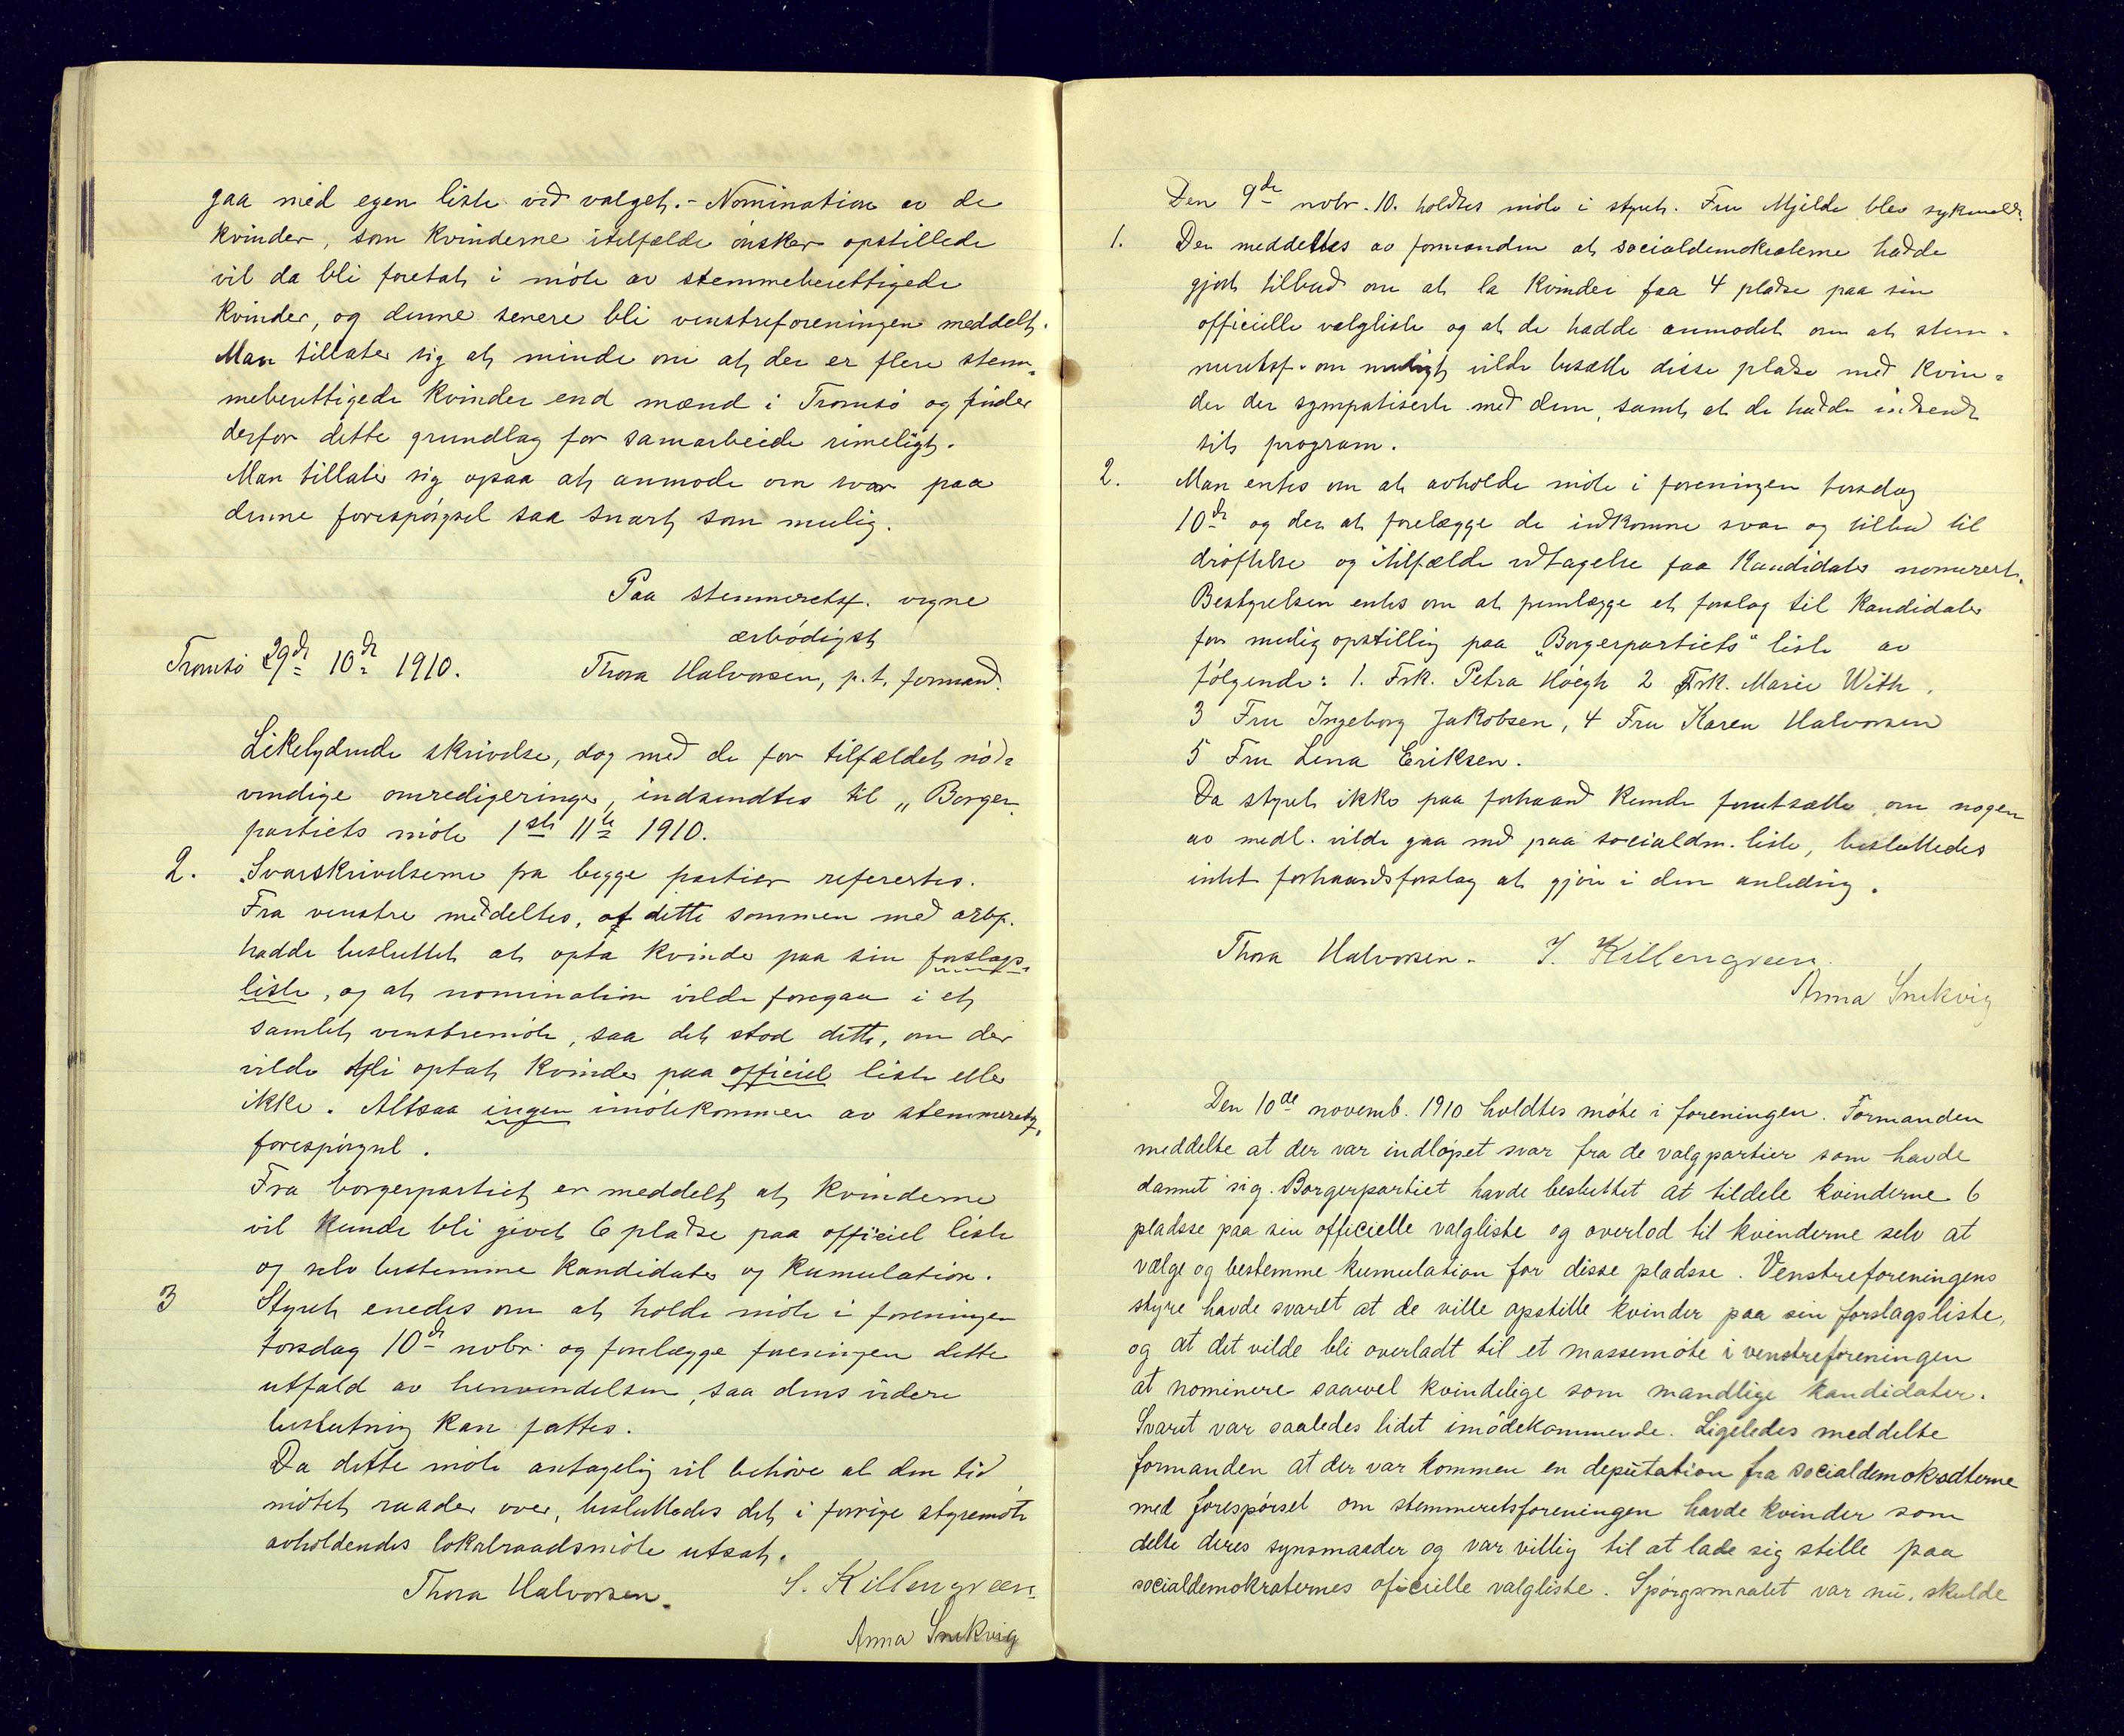 gaa med egen liste ved valget. - Nomination av de
kvinder, som kvinderne itilfælde ønsker opstillede
vil da bli foretat i møte av stemmeberettigede
kvinder, og denne senere bli venstreforeningen meddelt.
Man tillater sig at minde om at der er flere stem-
meberettigede kvinder end mænd i Tromsø og finder
derfor dette grundlag for samarbeide rimeligt.
Man tillater sig ogsaa at anmode om svar paa
denne forespørgsel saa snart som mulig.
Paa stemmeretsf. vegne
ærbødigst
Tromsø 29de 10de 1910. Thora Halvorsen, p.t. formand.
Likelydende skrivelse, dog med de for tilfældet nød-
vendige omredigeringer, indsendtes til „Borger-
partiets møte 1ste 11te 1910.
2. Svarskrivelserne fra begge partier refertes.
Fra venstre meddeltes, at dette sammen med arbp.
hadde besluttet at opta kvinder paa sin forslags-
liste, og at nomination vilde foregaa i et
samlet venstremøte, saa det stod dette, om der
vilde bli optat kvinder paa officiel liste eller
ikke. Altsaa ingen imøtekommen av stemmeretsf.
forespørgsel.
Fra borgerpartiet er meddelt at kvinderne
vil kunde bli givet 6 pladse paa officiel liste
og selv bestemme kandidater og kumulation.
3 Styret enedes om at holde møte i foreningen
torsdag 10de nobr. og forelægge foreningen dette
utfald av henvendelsen, saa dens videre
beslutning kan fattes.
Da dette møte antagelig vil behøve al den tid
møtet raader over, besluttedes det i forrige styremøte
avholdendes lokalraadsmøte utsat.
Thora Halvorsen. S. Killengreen
Anna Snekvig
Den 9de nobr. 10. holdtes møte i styret. Fru Mjelde blev sykmeldt.
1. Der meddeltes av formanden at socialdemokraterne hadde
gjort tilbud om at la kvinder faa 4 pladse paa sin
officielle valgliste og at de hadde anmodet om at stem-
meretsf. om muligt vilde besætte disse pladse med kvin-
der der sympatiserte med dem, samt at de hadde indsendt
sit program.
2. Man entes om at avholde møte i foreningen torsdag
10de og der at forelægge de indkomne svar og tilbud til
drøftelse og itilfælde utagelse faa kandidater nominert.
Bestyrelsen entes om at fremlægge et forslag til kandidater
for mulig opstillig paa „Borgerpartiets" liste av
følgende: 1. Frk. Petra Høegh 2 Frk. Marie With,
3 Fru Ingeborg Jakobsen, 4 Fru Karen Halvorsen
5 Fru Lena Eriksen.
Da styret ikke paa forhaand kunde forutsætte om nogen
av medl. vilde gaa med paa socialdm. liste, besluttedes
intet forhaandsforslag at gjøre i den anledning.
Thora Halvorsen. S. Killengreen.
Anna Snekvig
Den 10de novemb. 1910 holdtes møte i foreningen. Formanden
meddelte at der var indløpet svar fra de valgpartier som havde
dannet sig. Borgerpartiet havde besluttet at tildele kvinderne 6
pladsse paa sin officielle valgliste og overlod til kvinderne selv at
vælge og bestemme kumulation for disse pladsse. Venstreforeningens
styre havde svaret at de ville opstille kvinder paa sin forslagsliste,
og at det vilde bli overladt til et massemøte i venstreforeningen
at nominere saavel kvindelige som mandlige kandidater.
Svaret var saaledes lidet imødekommende. Ligeledes meddelte
formanden at der var kommen en deputation fra socialdemokraterne
med forespørsel om stemmeretsforeningen havde kvinder som
delte deres synsmaader og var villig til at lade sig stille paa
socialdemokraternes oficielle valgliste. Spørgsmaalet var nu, skulde